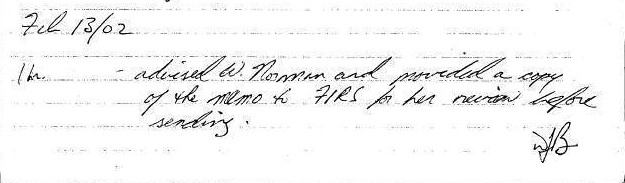 Feb 13/02
1 hr. - advised W. Norman and provided a copy
of the memo to FIRS for her review before
sending.